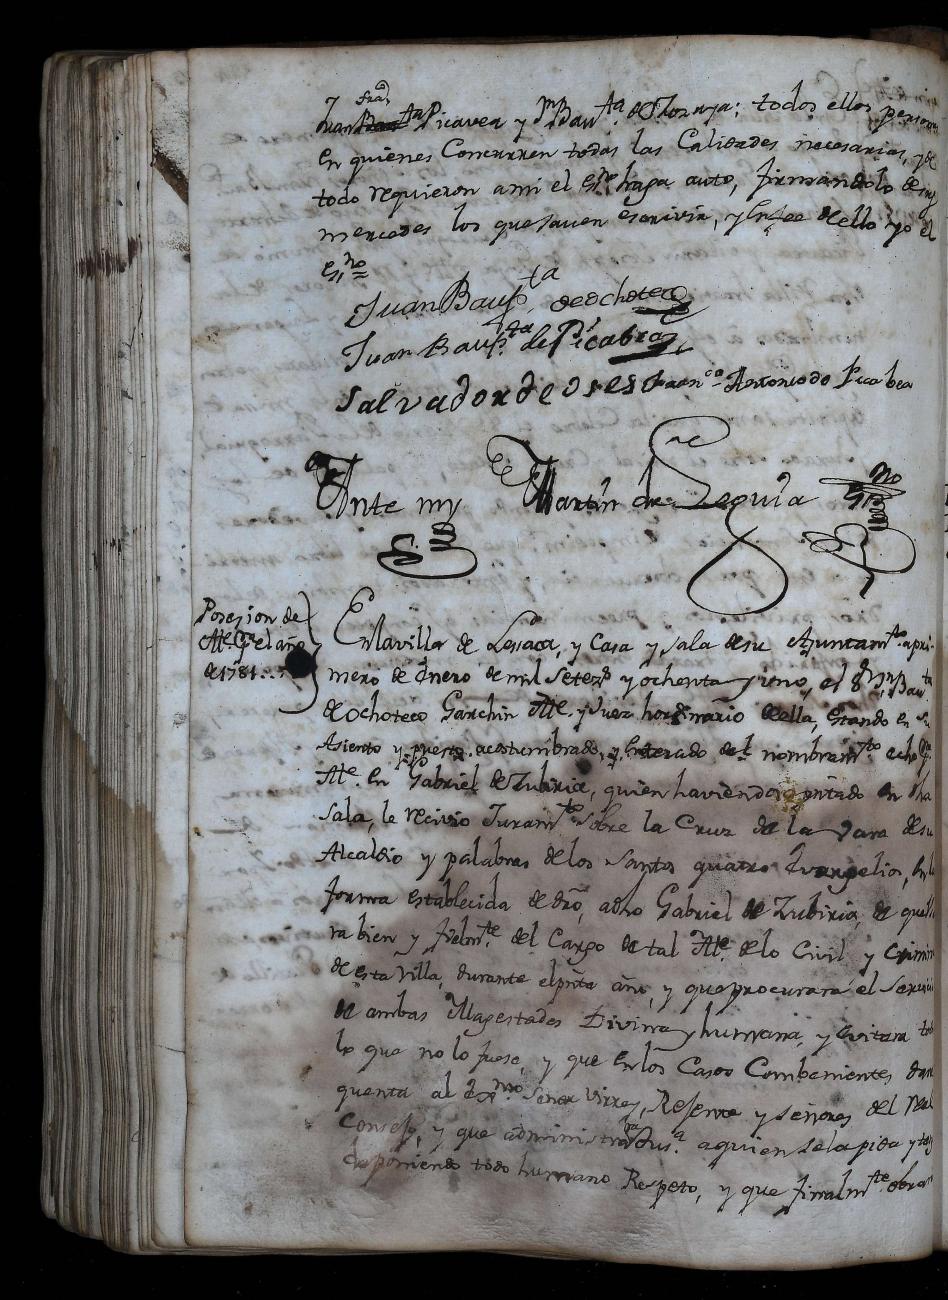 7 fran.co
Juan Bauta Picavea y Jn Bauta. de Tornaya; todos ellos person
en quienes Concurren todas las Calidades necesarias, y de
todo requieron ami el esno haga auto, firmandolo de sus
mercedes los que saven escrivir, y en fee de ello yo el
esno=
Juan Baupta. de ochoteco
Juan Baupta de Picabea
Salvador de Ores Franco. Antonio de Picabea
Ante my Martin de Leguia esno
Posezion de
Alle. Pr el año
de 1781..
En la villa de Lesaca, y Casa y sala de su Ajuntamto. a pri-
mero de Enero de mil Setezs. y ochenta y uno, el Sr Jn Bauta
de ochoteco Garchin Alle. y Juez hordinario de ella, Estando en su
Asiento y puesto acostumbrado, y Enterado del nombramto echo pr
Alle. en Gabriel de Zubiria, quien haviendose pntado en dha
sala, le recivio Juramto sobre la Cruz de la vara de su
Alcaldio y palabras de los santos quatro Evangelios, en la
forma establecida de dro, adho Gabriel de Zubiria, de que lle
ra bien y fielmte. el Cargo de tal Alle. de lo Civil y Crimin
de esta Villa, durante el pnte año, y que procurara el Servicio
de ambas Magestades Divina y humana, y evitara tod
lo que no lo fuese, y que en los Casos Combenientes dara
quenta al Exmo. Señor Virrey, Rejente y señores del Real
Consejo, y que administrara Jusa. a quien se la pida y teng
deponiendo todo humano Respeto, y que finalmte. obrar